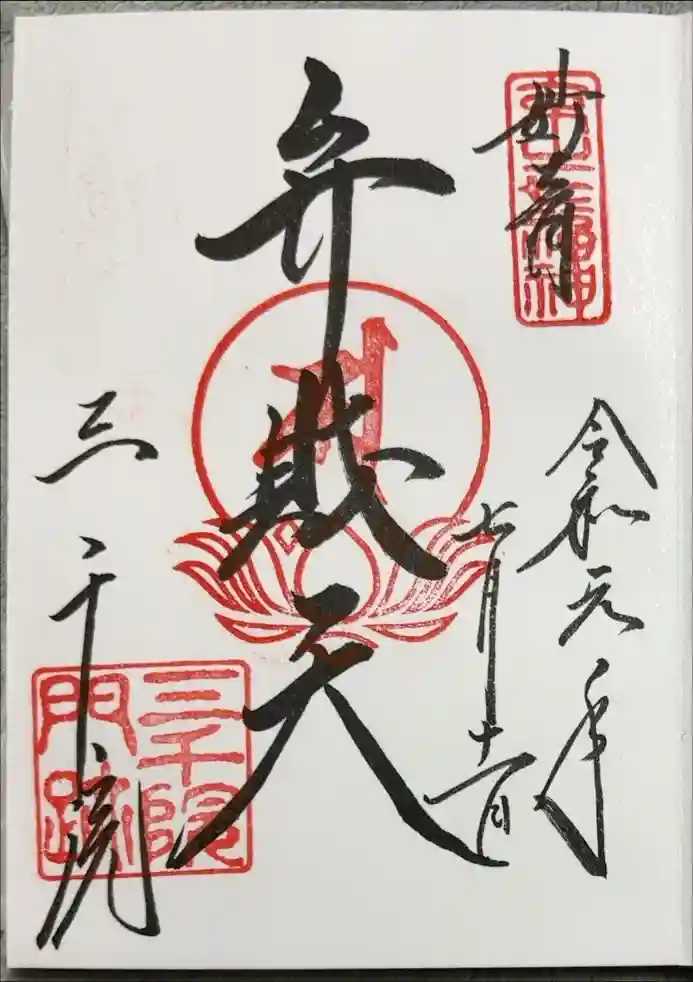 妙音
令和元年
七月十一日
弁財天
三千院
三千院
門跡